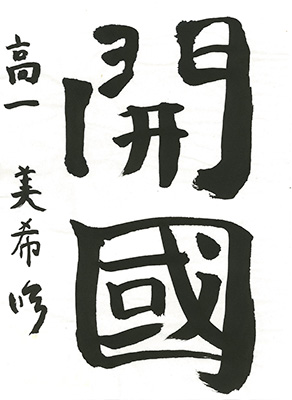 開國
高一 美希